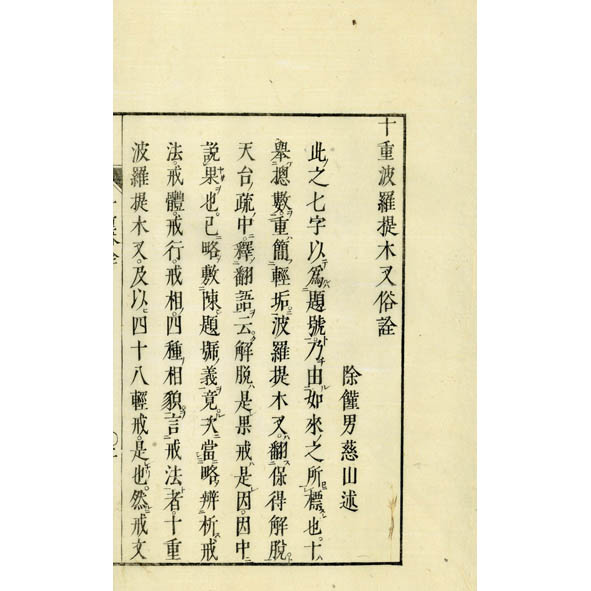 十重波羅提木叉俗詮
除饉男慈山述
此之七字以爲題號乃由如來之所標也十
舉摠數重簡輕垢波羅提木叉翻保得解脫
天台疏中釋翻語云解脫是果戒是因因中
說果也已略敷陳題㫄義竟次當略辨析戒
法戒體戒行戒相四種相貌言戒法者十重
波羅提木叉及以四十八輕戒是也然戒文